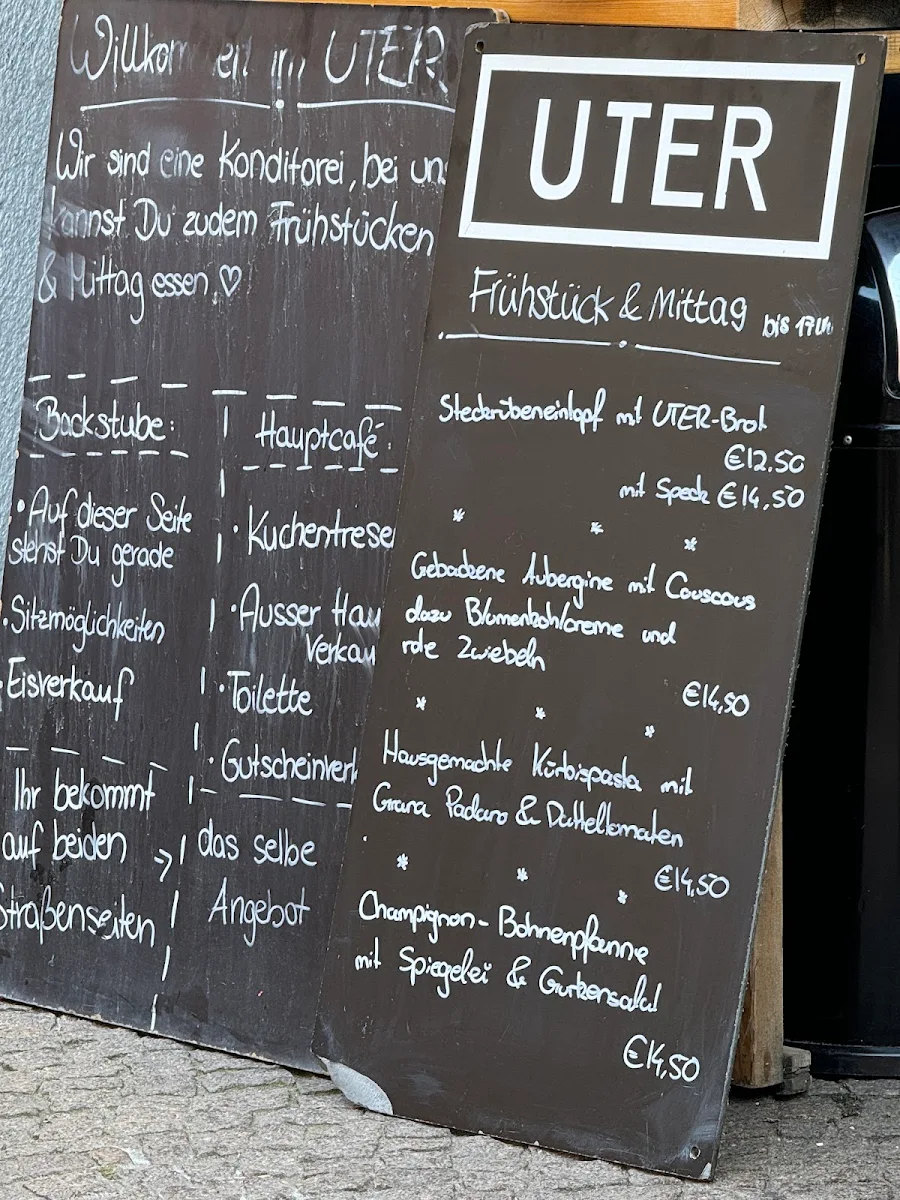 Willkommen im UTER
Wir sind eine Konditorei, bei uns
kannst Du zudem Frühstücken
& Mittag essen ♡
Backstube:
• Auf dieser Seite
stehst Du gerade
• Sitzmöglichkeiten
• Eisverkauf
Ihr bekommt
auf beiden →
Straßenseiten
Hauptcafé:
• Kuchentrese
• Ausser Hau
Verkau
• Toilette
• Gutscheinverk
das selbe
Angebot
UTER
Frühstück & Mittag bis 17 Uh
Steckrübeneintopf mit UTER-Brot
€12.50
mit Speck €14,50
* * *
Gebackene Aubergine mit Couscous
dazu Blumenkohlcreme und
rote Zwiebeln
€14,50
* * *
Hausgemachte Kürbispasta mit
Grana Padano & Datteltomaten
€14,50
* * *
Champignon-Bohnenpfanne
mit Spiegelei & Gurkensalat
€14,50